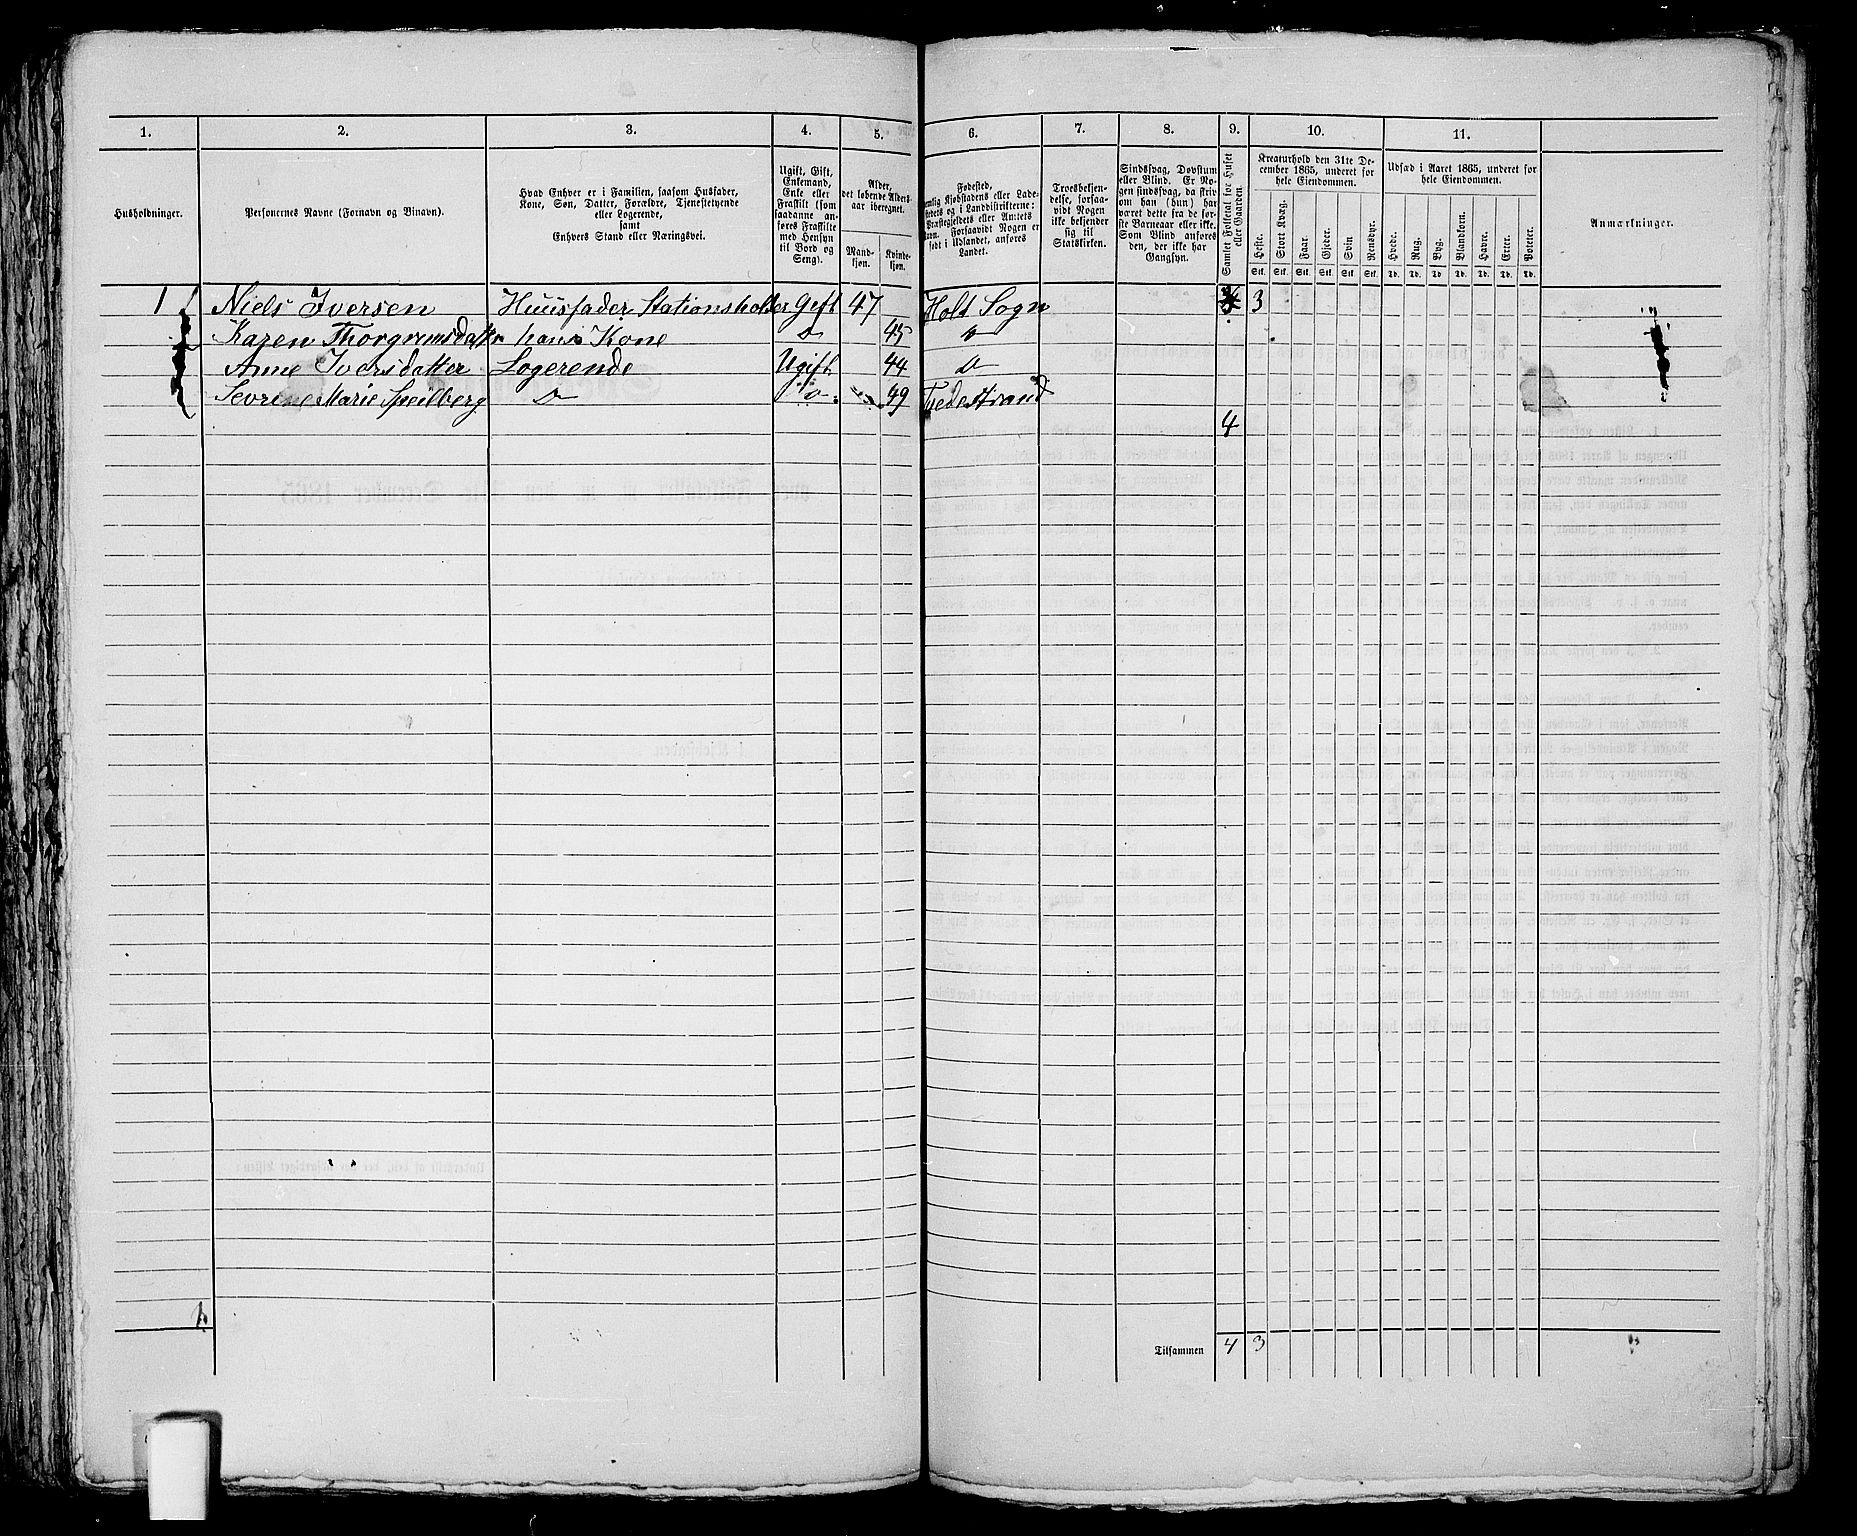 1. 2. 3. 4. 5. 6. 7. 8. 9. 10. 11.
Husholdninger.
Personernes Navne (Fornavn og Binavn).
Hvad Enhver er i Familien, saasom Husfader,
Kone, Søn, Datter, Forældre, Tjenestetyende
eller Logerende,
samt
Enhvers Stand eller Næringsvei.
Ugift, Gift,
Enkemand,
Enke eller
Fraskilt (som
saadanne an-
føres Fraskilte
med Hensyn
til Bord og
Seng).
Alder,
det løbende Alders-
aar iberegnet.
Mand-
kjøn.
Kvinde-
kjøn.
Fødested,
nemlig Kjøbstadens eller Lade-
stedets og i Landdistrikterne:
Præstegjeldets eller Amtets
Navn. Forsaavidt Nogen er
født i Udlandet, anføres
Landet.
Troesbekjen-
delse, forsaa-
vidt Nogen
ikke bekjender
sig til
Statskirken.
Sindssvag, Døvstum
eller Blind. Er No-
gen sindssvag, da skriv
om han (hun) har
været dette fra de før-
ste Barneaar eller ikke.
Som Blind anføres
den, der ikke har
Gangsyn.
Samlet Folketal for Huset
eller Gaarden.
Kreaturhold den 31te De-
cember 1865, underet for
hele Eiendommen.
Heste. Stort Kvæg. Faar. Gjeder. Svin Rensdyr.
Stk. Stk. Stk. Stk. Stk. Stk.
Udsæd i Aaret 1865, underet for
hele Eiendommen.
Hvede. Rug. Byg. Blandkorn. Havre. Erter. Poteter.
Td. Td. Td. Td. Td. Td. Td.
Anmærkninger.
1 Niels Iversen Huusfader Stationsholder Gift 47 Holt Sogn 3
Karen Thorgrimsdatter hans Kone Do 45 Do
Anne Iversdatter Logerende Ugift 44 Do
Sevrine Marie Speilberg Do Do 49 Tvedestrand
4
1
Tilsammen 4 3